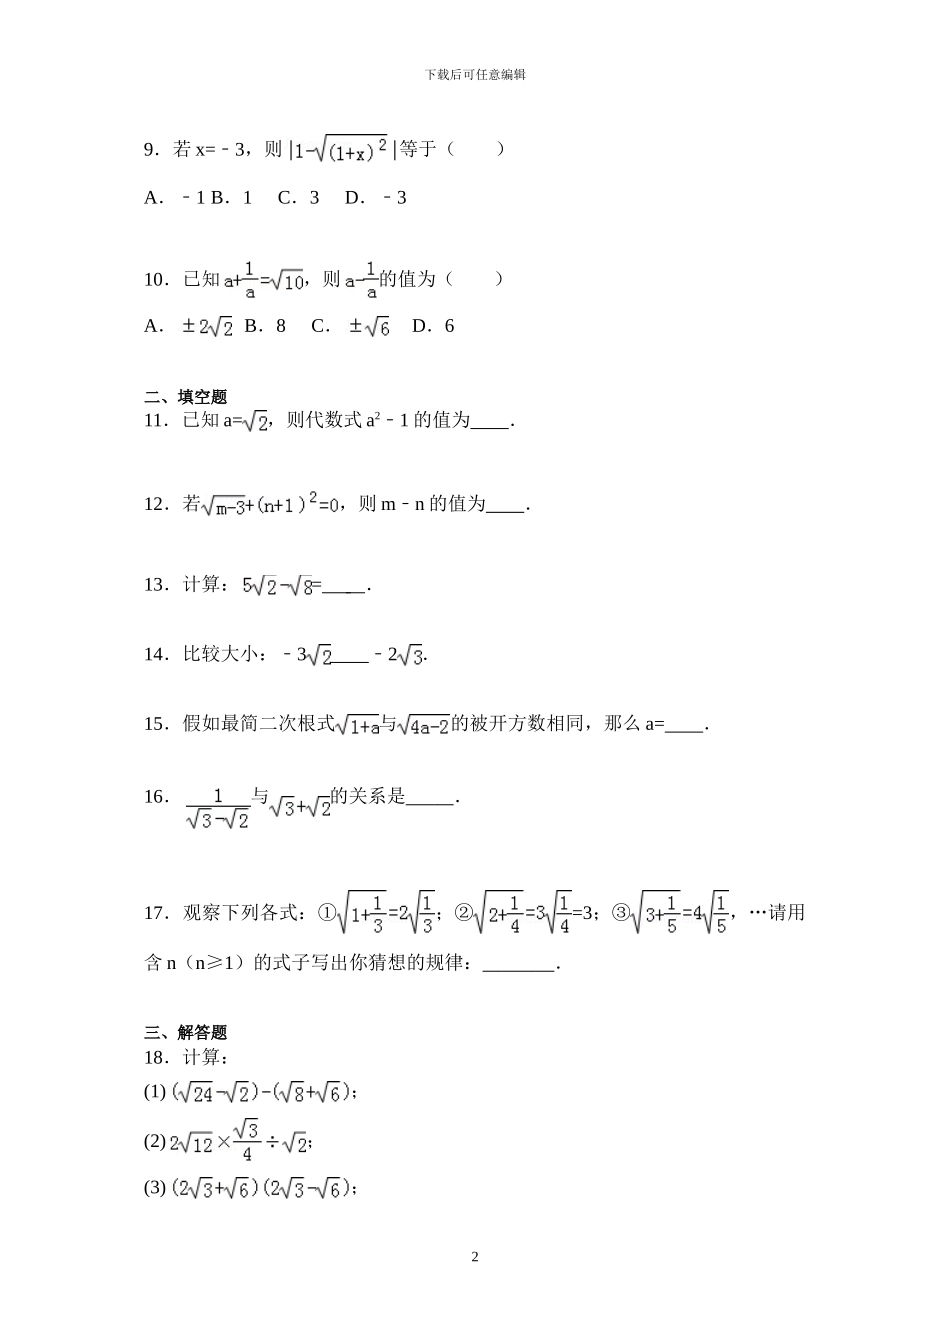 下载后可任意编辑
9．若 x=﹣3，则 |1-√(1+x)²|等于（　　）
A．﹣1 B．1 C．3 D．﹣3
10．已知 a+1/a=√10，则 a-1/a的值为（　　）
A．±2√2 B．8 C．±√6 D．6
二、填空题
11．已知 a=√2，则代数式 a²﹣1 的值为____．
12．若√(m-3)+(n+1)²=0，则 m﹣n 的值为____．
13．计算：5√2-√8=____．
14．比较大小：﹣3√2____﹣2√3．
15．假如最简二次根式√(1+a)与√(4a-2)的被开方数相同，那么 a=____．
16．1/(√3-√2)与√3+√2的关系是_____．
17．观察下列各式：①√(1+1/3)=2√(1/3)；②√(2+1/4)=3√(1/4)=3；③√(3+1/5)=4√(1/5)，…请用
含 n（n≥1）的式子写出你猜想的规律：________．
三、解答题
18．计算：
(1) (√24-√2)-(√8+√6)；
(2) 2√12×√3/4÷√2；
(3) (2√3+√6)(2√3-√6)；
2